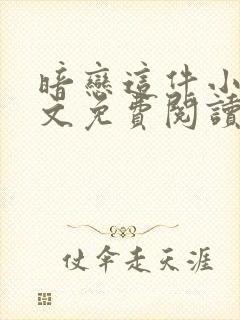 暗戀這件小
文免費閱讀
仗傘走天涯